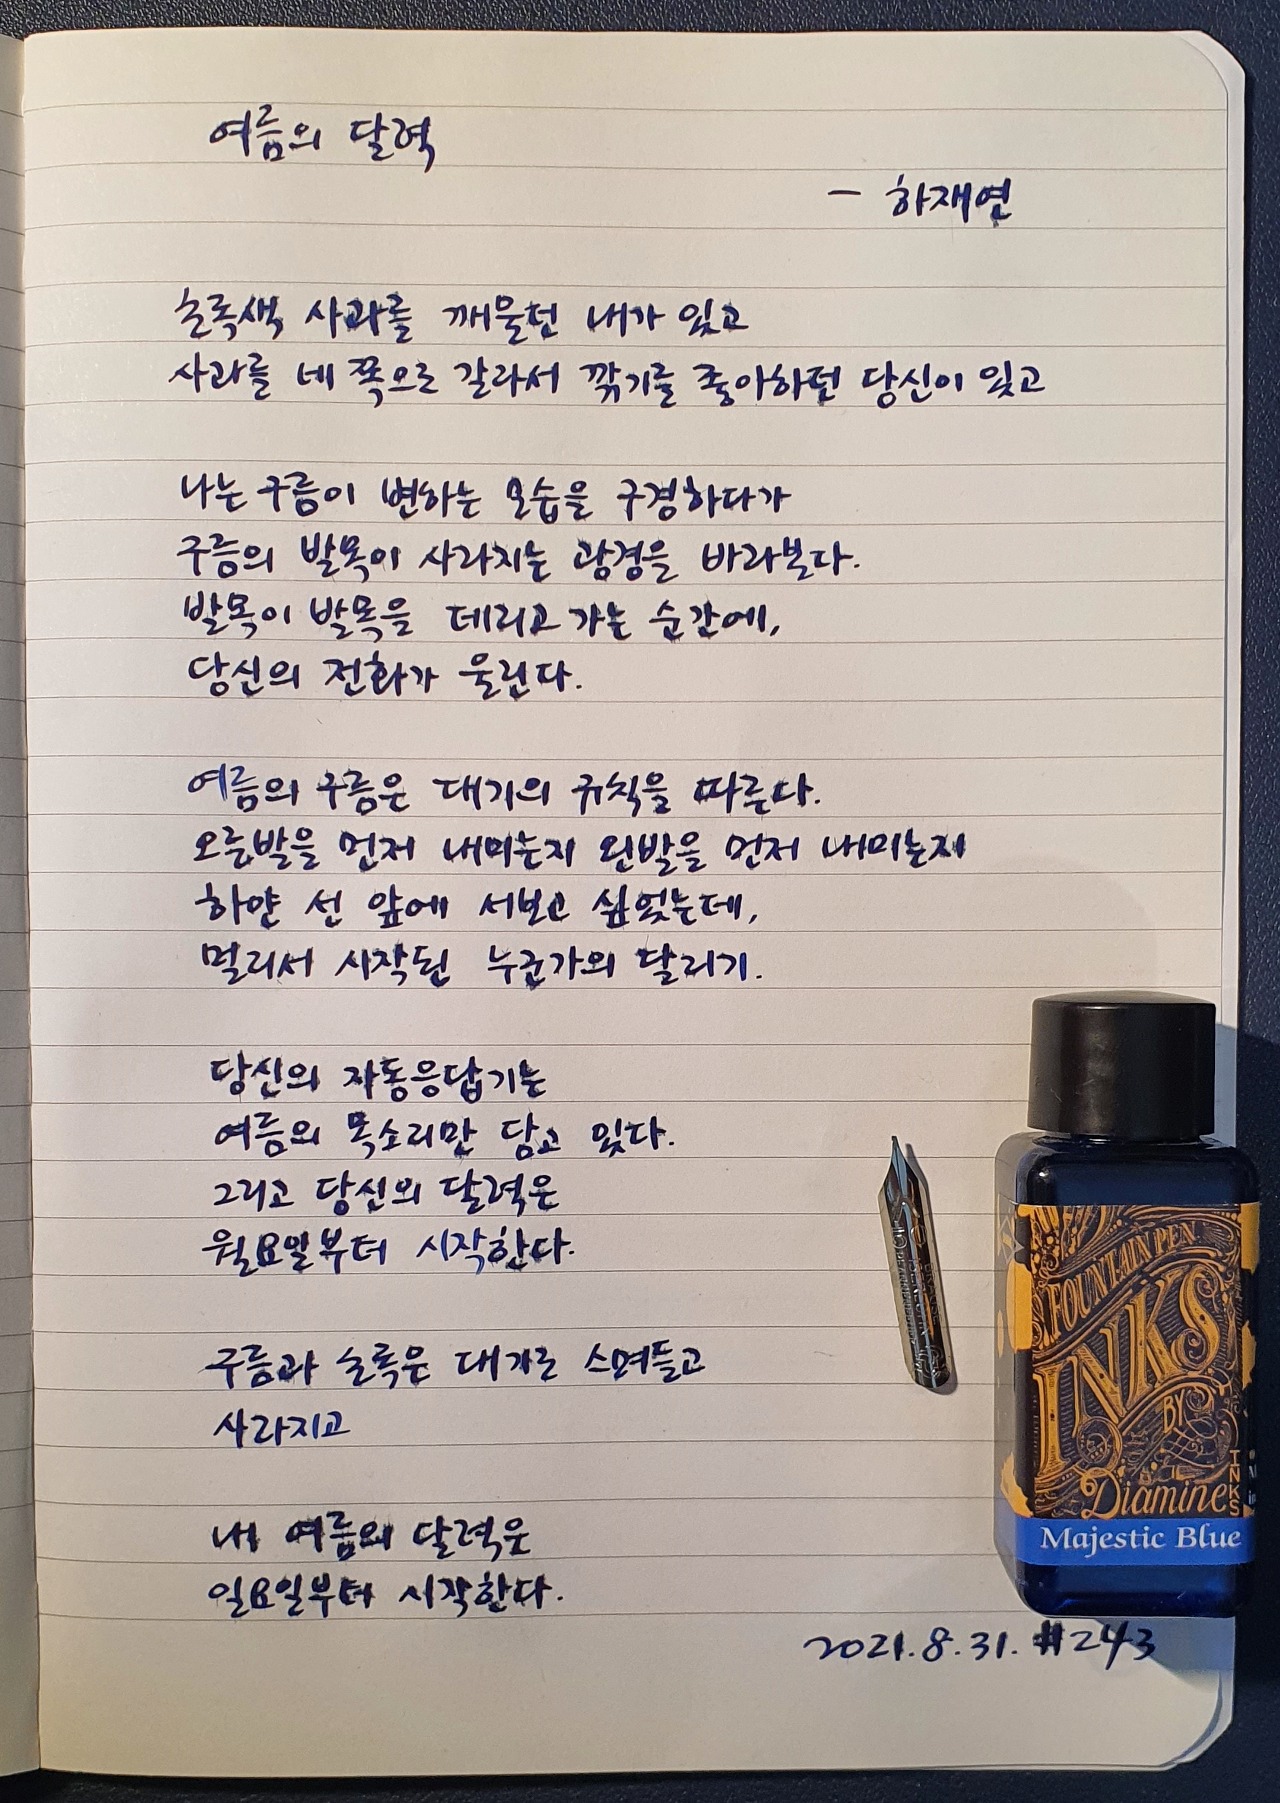 여름의 달력
- 하재연
초록색 사과를 깨물던 내가 있고
사과를 네 쪽으로 갈라서 깎기를 좋아하던 당신이 있고
나는 구름이 변하는 모습을 구경하다가
구름의 발목이 사라지는 광경을 바라본다.
발목이 발목을 데리고 가는 순간에,
당신의 전화가 울린다.
여름의 구름은 대기의 규칙을 따른다.
오른발을 먼저 내미는지 왼발을 먼저 내미는지
하얀 선 앞에 서보고 싶었는데,
멀리서 시작된 누군가의 달리기.
당신의 자동응답기는
여름의 목소리만 담고 있다.
그리고 당신의 달력은
월요일부터 시작한다.
구름과 초록은 대기로 스며들고
사라지고
내 여름의 달력은
일요일부터 시작한다.
2021.8.31. #243
FOUNTAIN PEN
INKS
BY
Diamine
INKS
Majestic Blue